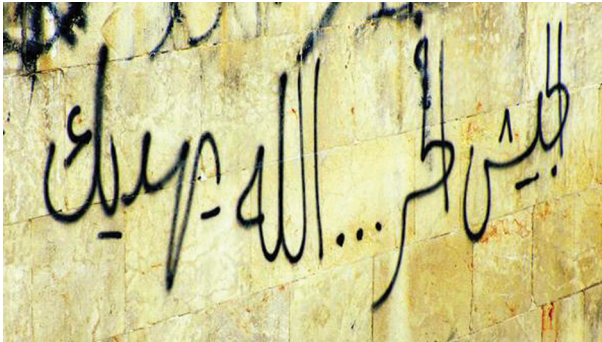 الجيش الحر ... الله يهديك